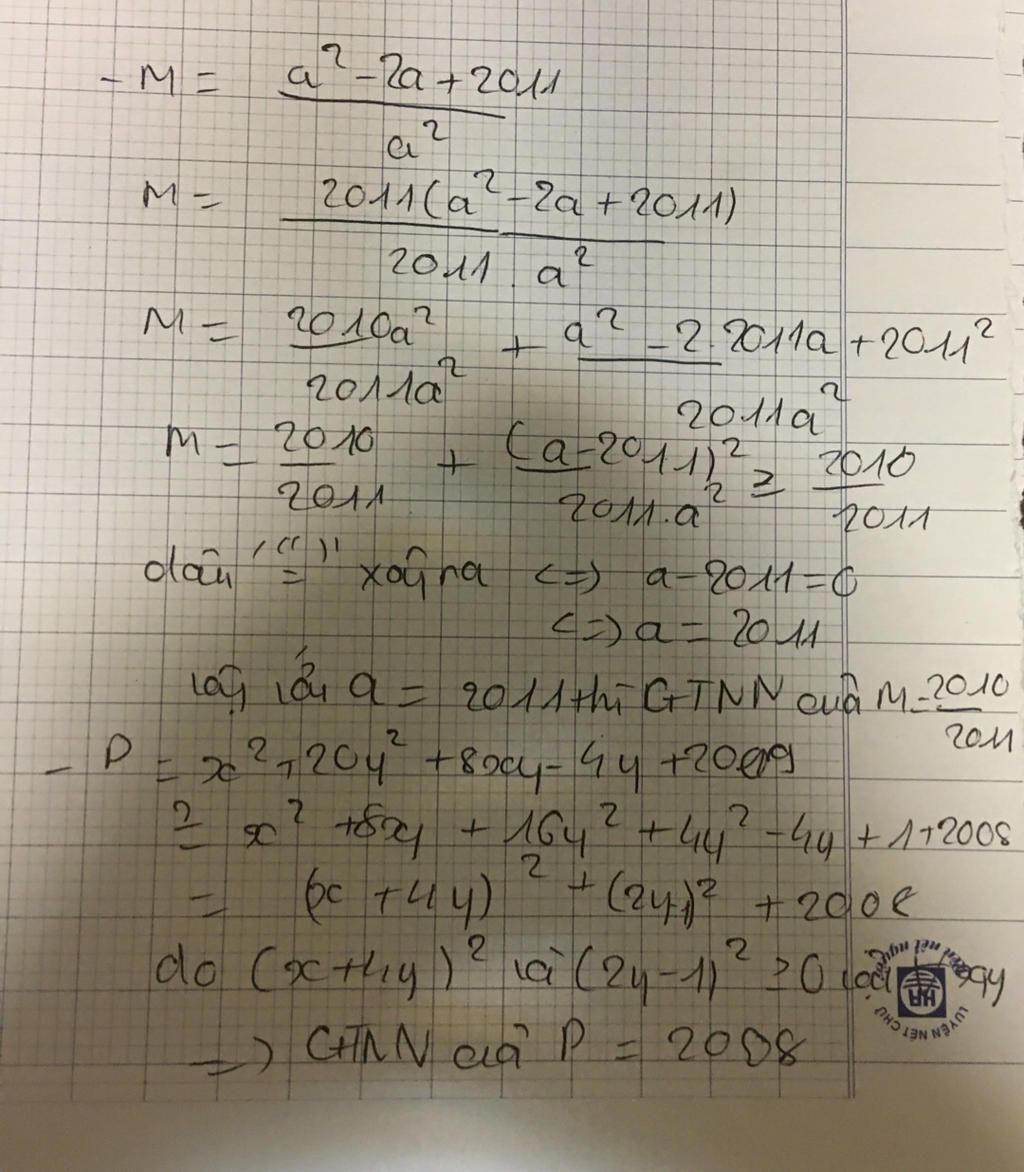 - M = a² - 2a + 2011 / a²
M = 2011(a² - 2a + 2011) / 2011 . a²
M = 2010a² / 2011a² + a² - 2.2011a + 2011² / 2011a²
M = 2010 / 2011 + (a - 2011)² / 2011.a² ≥ 2010 / 2011
dấu "=" xảy ra <=> a - 2011 = 0
<=> a = 2011
vậy với a = 2011 thì GTNN của M = 2010 / 2011
- P = x² + 20y² + 8xy - 4y + 2009
= x² + 8xy + 16y² + 4y² - 4y + 1 + 2008
= (x + 4y)² + (2y-1)² + 2008
do (x + 4y)² và (2y - 1)² ≥ 0 với xy
=> GTNN của P = 2008
LUYỆN NÉT CHỮ
rèn nết người
HA